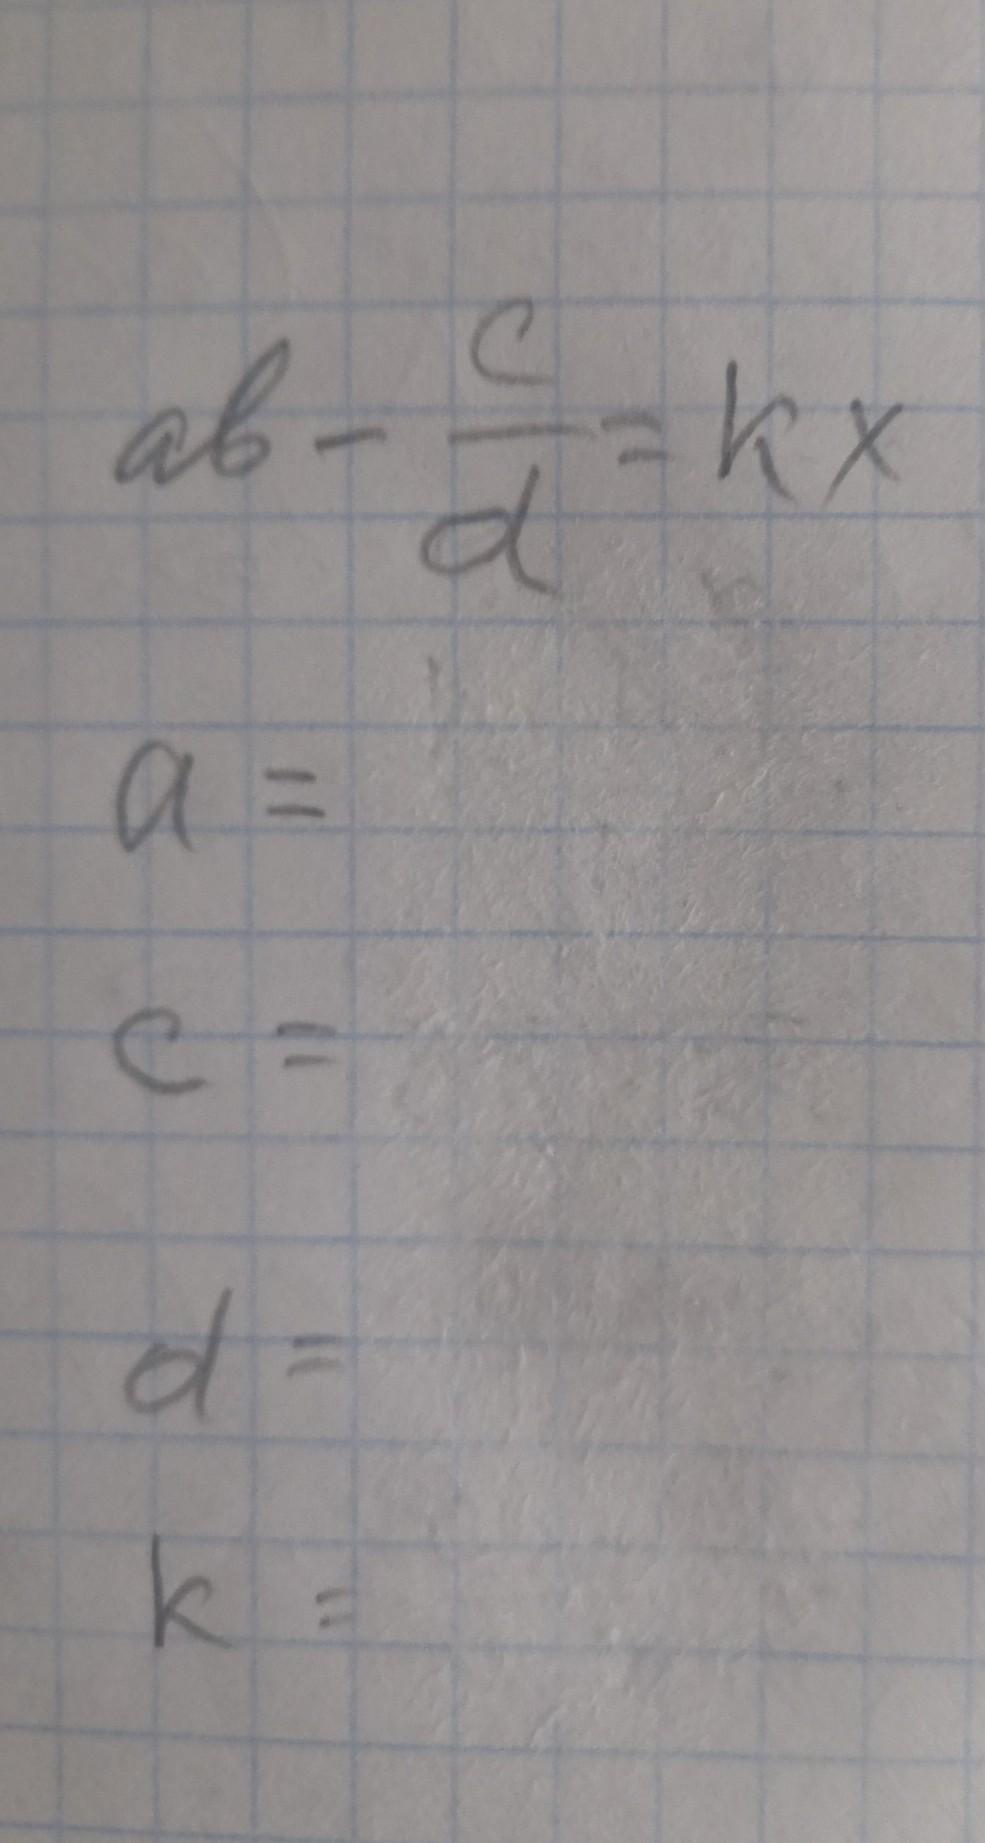 ab - c/d = kx
a =
c =
d =
k =